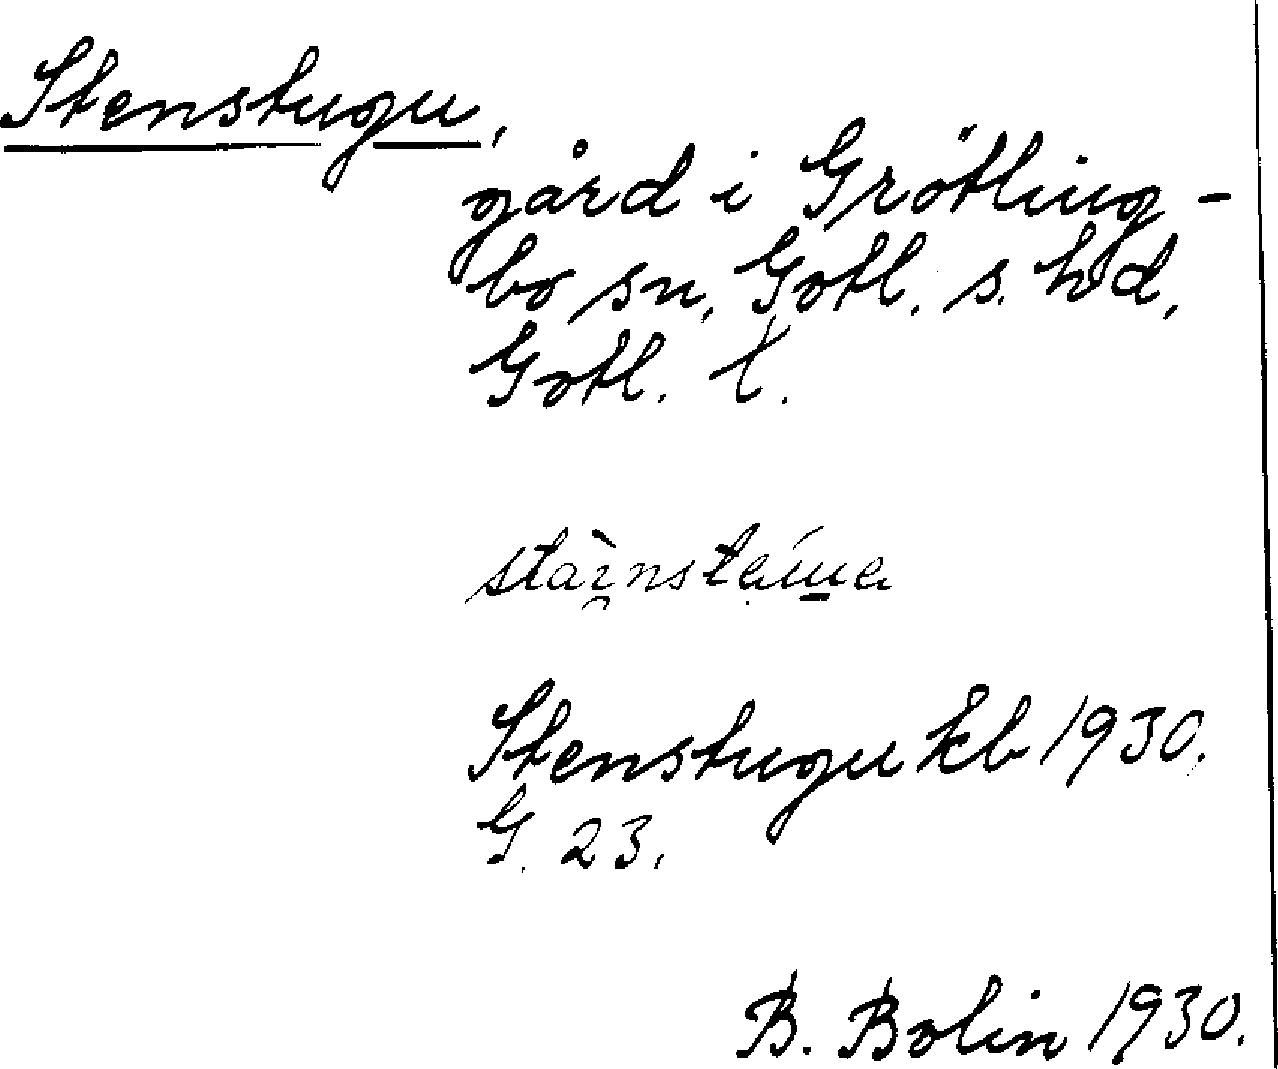 Stenstugu,
gård i Grötling-
bo sn, Gotl. s. hd,
Gotl. l.
Stenstugu kb 1930.
G. 23.
B. Bolin 1930.